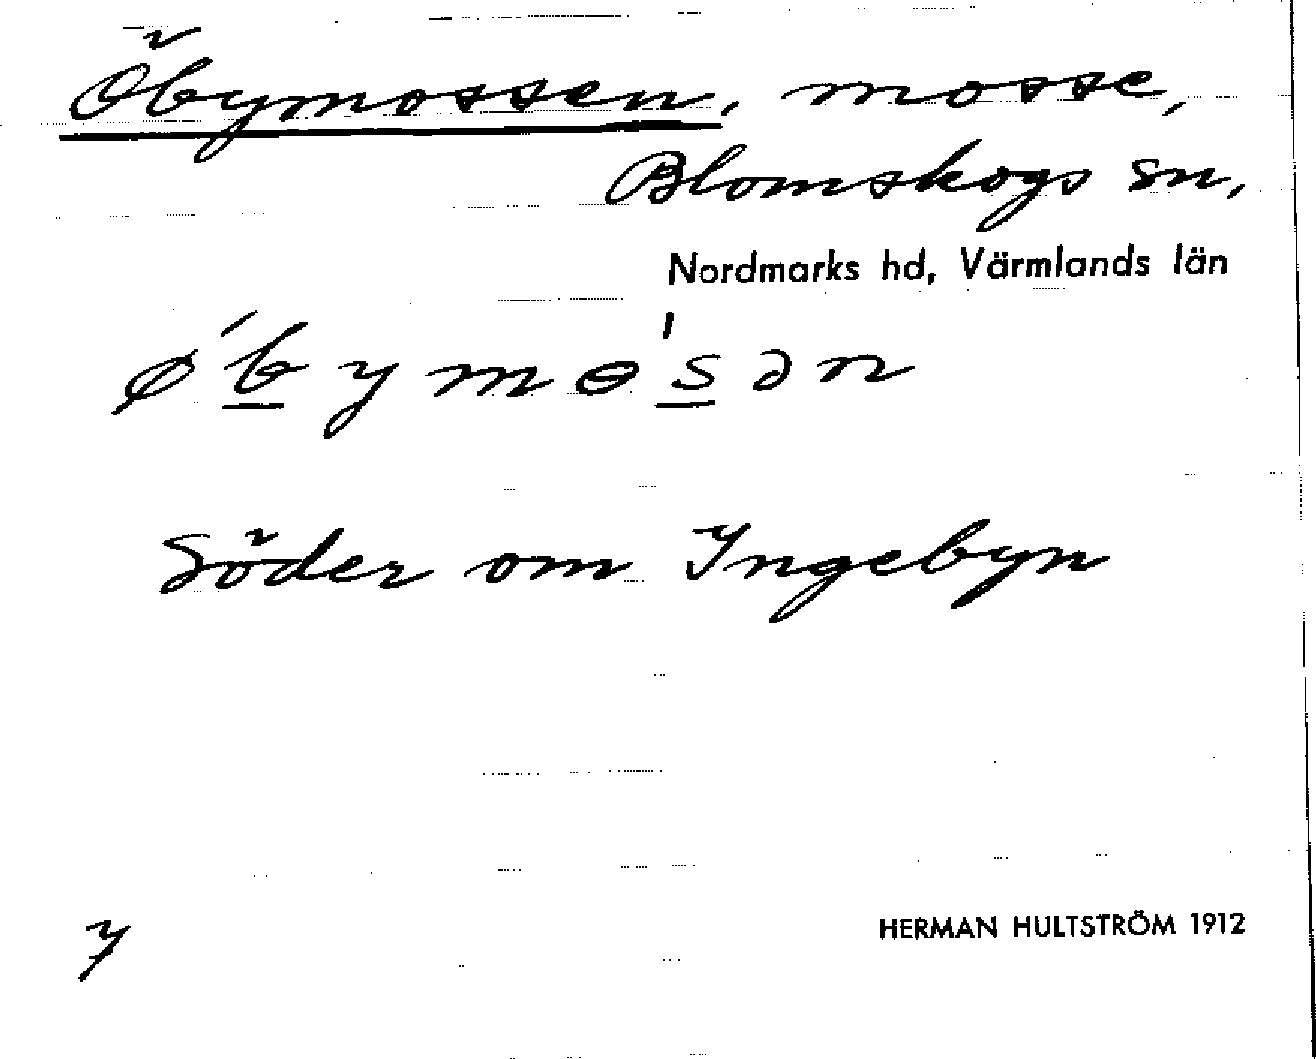 Öbymossen, mosse,
Blomskogs sn,
Nordmarks hd, Värmlands län
ǿb̲ymɵ's̲ən
Söder om Ingebyn
7
HERMAN HULTSTRÖM 1912